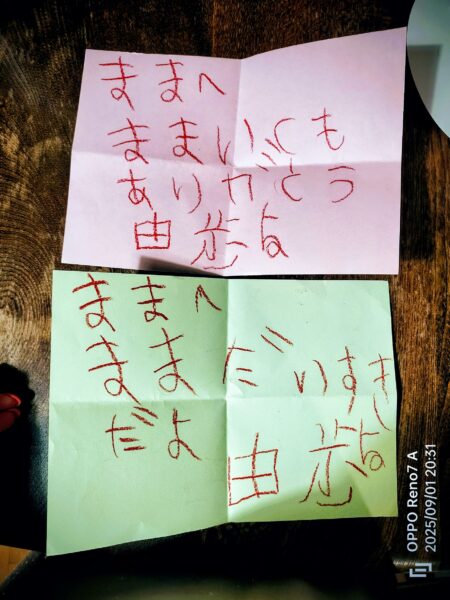 ままへ
ままいつも
ありがとう
由歩よ
ままへ
ままだいすき
だよ
由歩よ
OPPO Reno7 A
2025/09/01 20:31